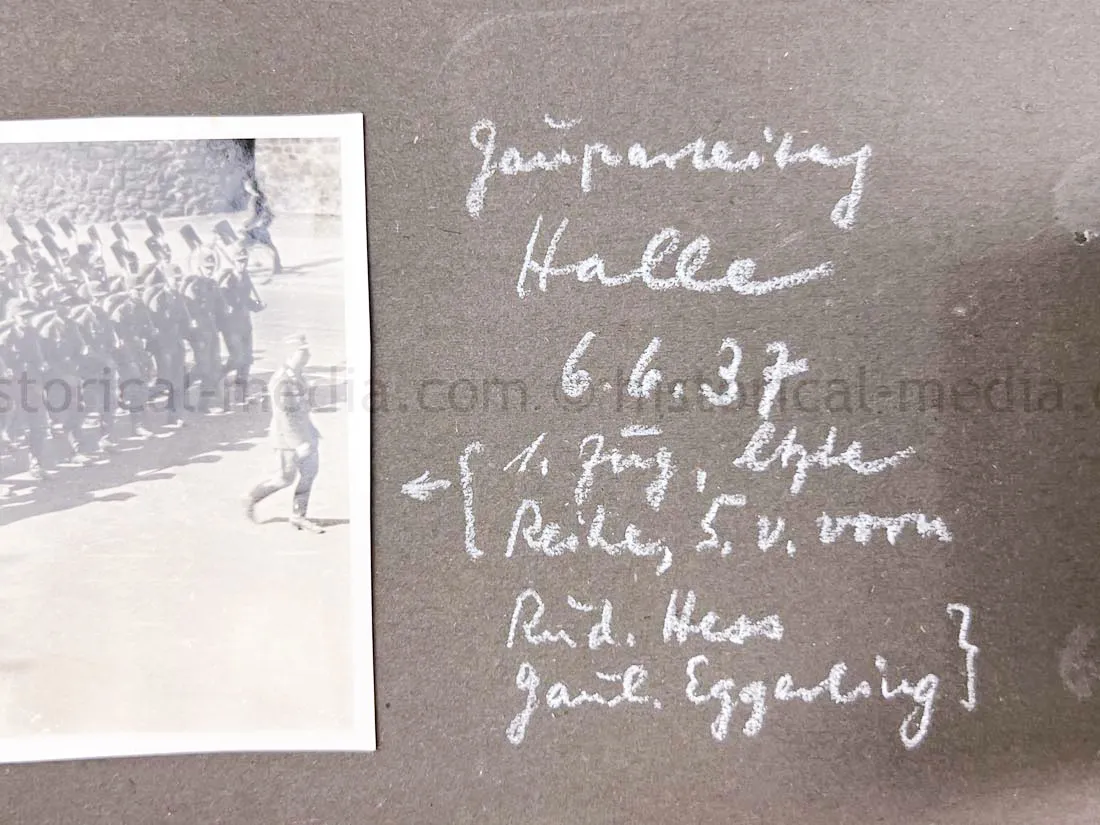 Gauparteitag
Halle
6.6.37
storical-media.com © historical-media.c
1. Zug, letzte
Reihe, 5. v. vorn
Rud. Hess
Gaul. Eggerling